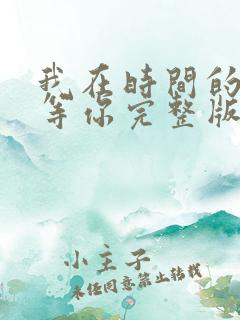 我在時間的
等你完整版
小主子
未经同意禁止转载